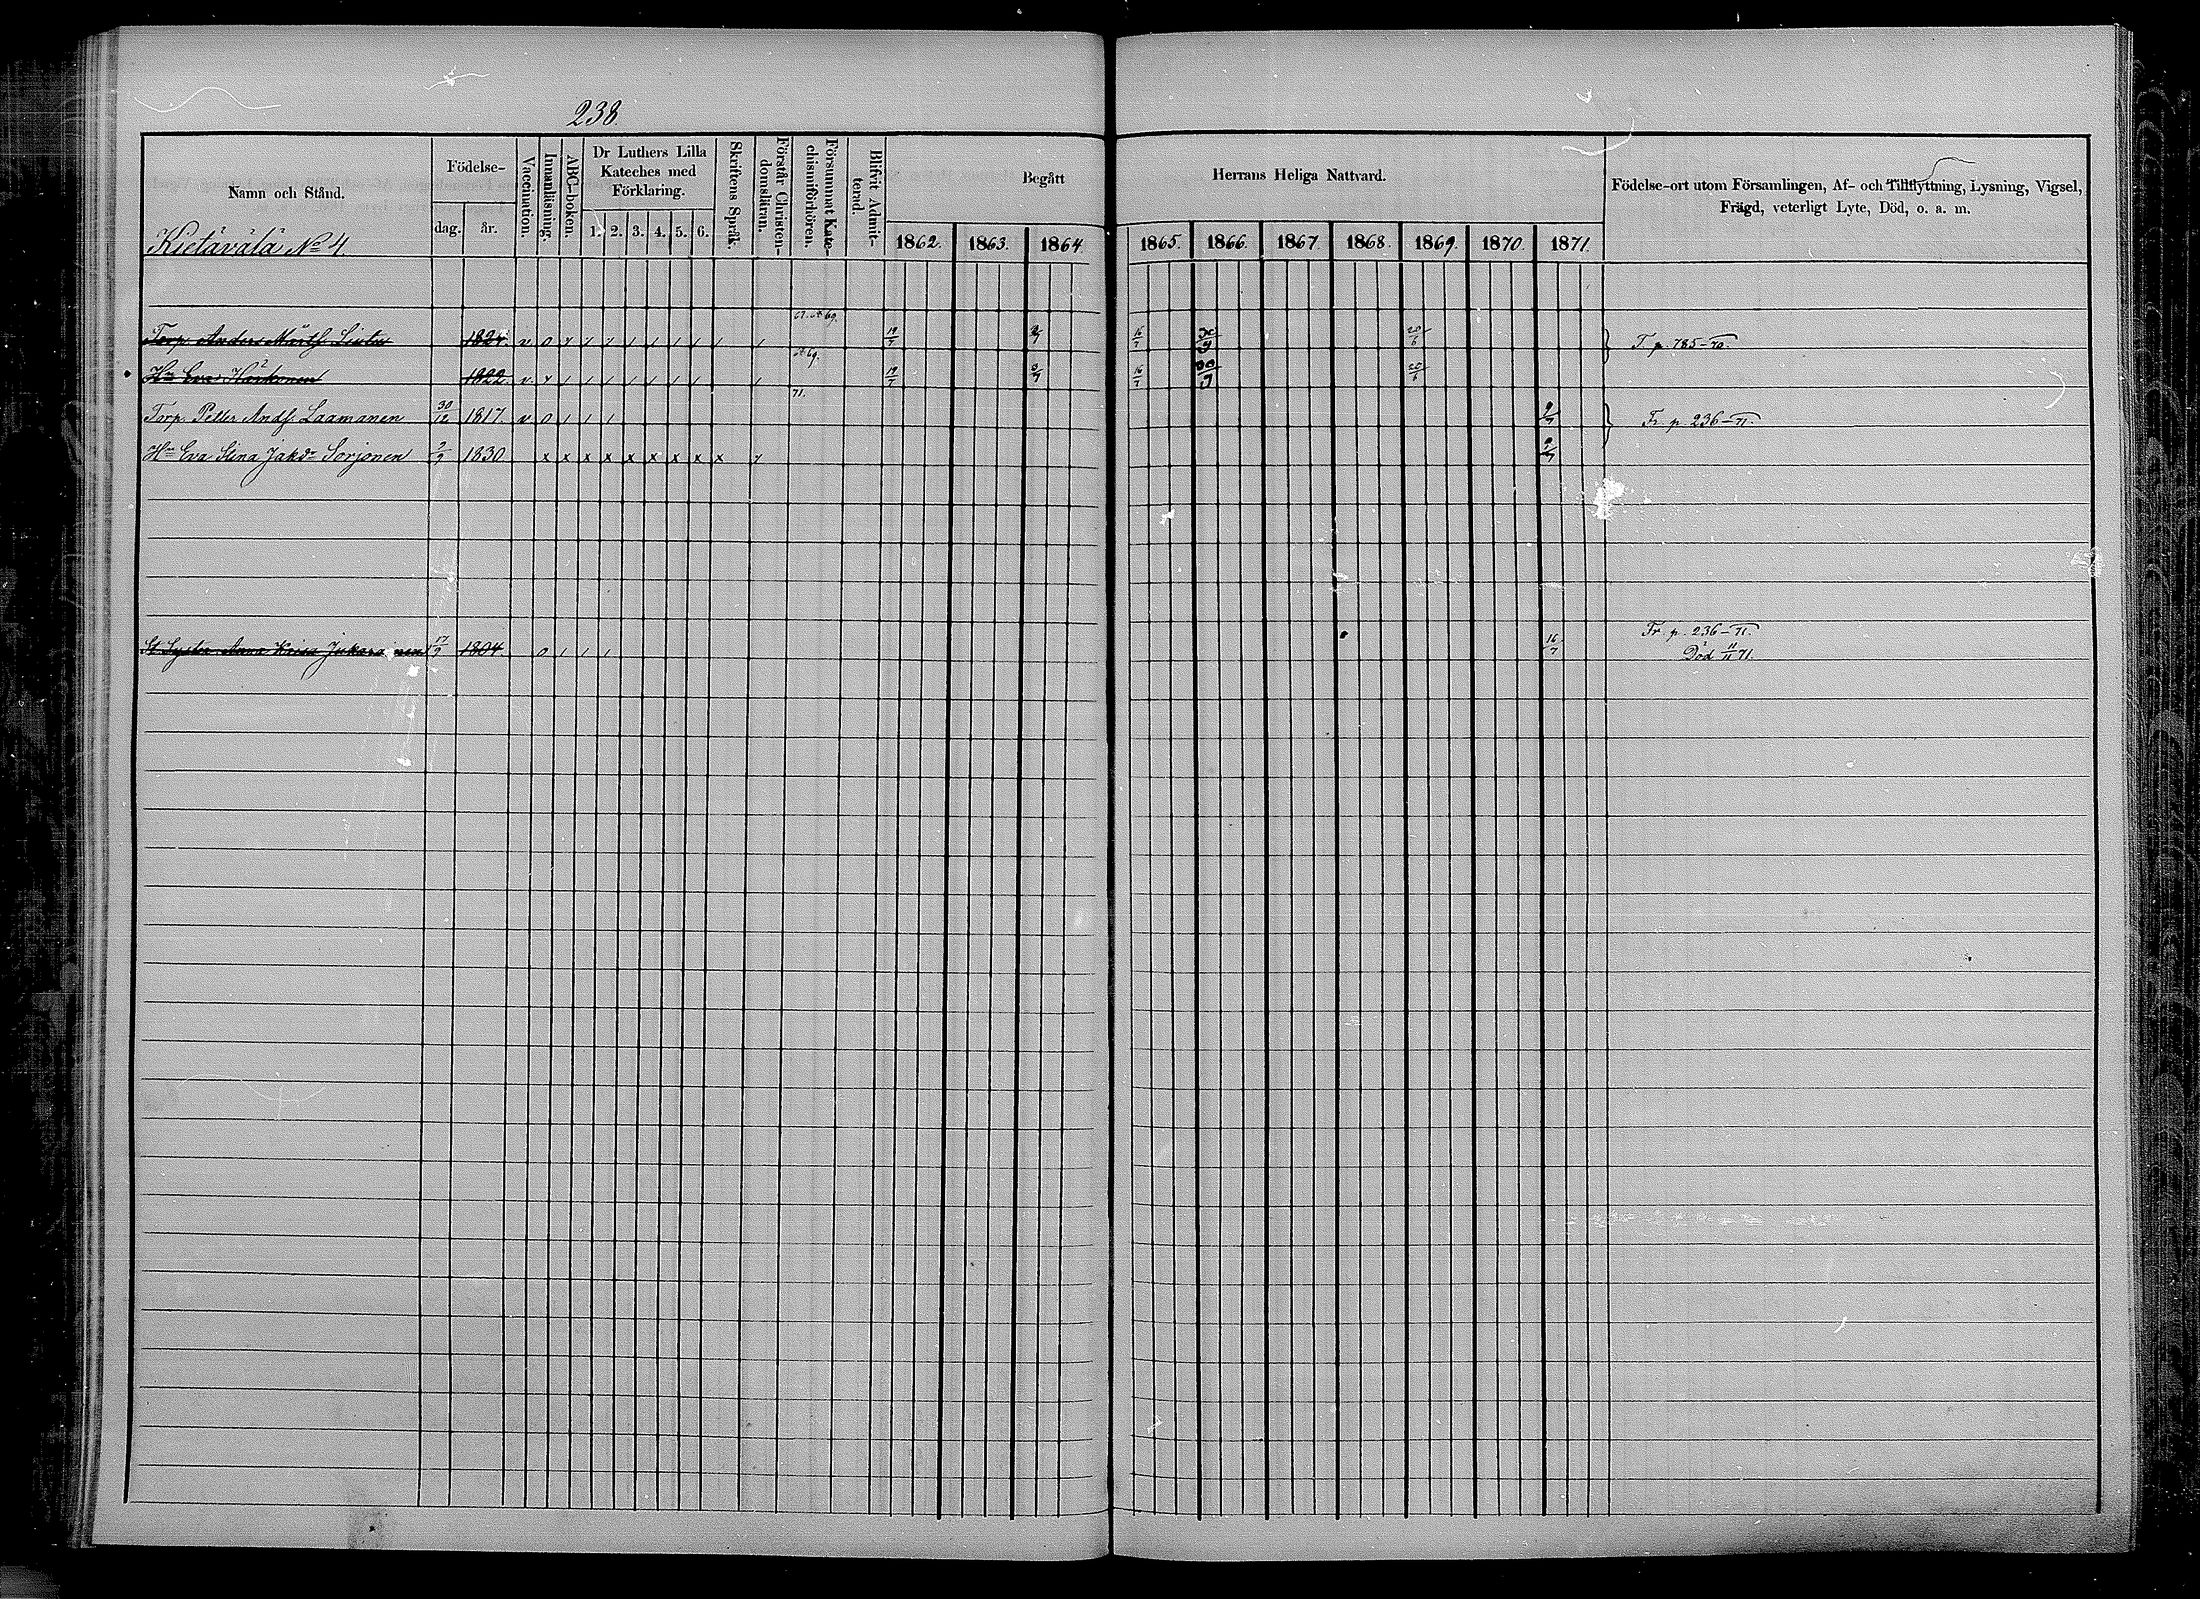 238.
Namn och Stånd.
Födelse-
dag. år.
Vaccination.
Innanläsning.
ABC-boken.
Dr Luthers Lilla
Kateches med
Förklaring.
1. 2. 3. 4. 5. 6.
Skriftens Språk.
Förstår Christen-
domsläran.
Försummat Kate-
chismiförhören.
Blifvit Admit-
terad.
Begått
Herrans Heliga Nattvard.
1862. 1863. 1864. 1865. 1866. 1867. 1868. 1869. 1870. 1871.
Födelse-ort utom Församlingen, Af- och Tillflyttning, Lysning, Vigsel,
Frägd, veterligt Lyte, Död, o. a. m.
Kietäväläs No 4.
Torp. Anders 1824. v 0 19/7 16/7 20/6 T. p. 785-70.
Hu Eva Härkonen 1822. v. 19/7 16/7 20/6
71.
Torp. Petter Andf. Laamanen 30/12 1817. v 0 / / / Fr. p. 236-71.
Hu Eva Stina Jakdr Sorjonen 2/9 1830 x x x x x x x x x
St. Syster Anna 17/9 1804. 0 / / / 16/7 Fr. p. 236-71.
Död 11/11 71.